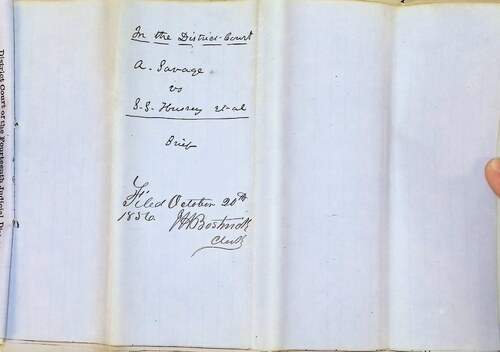 In the District Court
A. Savage
vs
S. S. Hussey et al
Brief
Filed October 20th
1856
Clerk
District Court of the Fourteenth Judicial